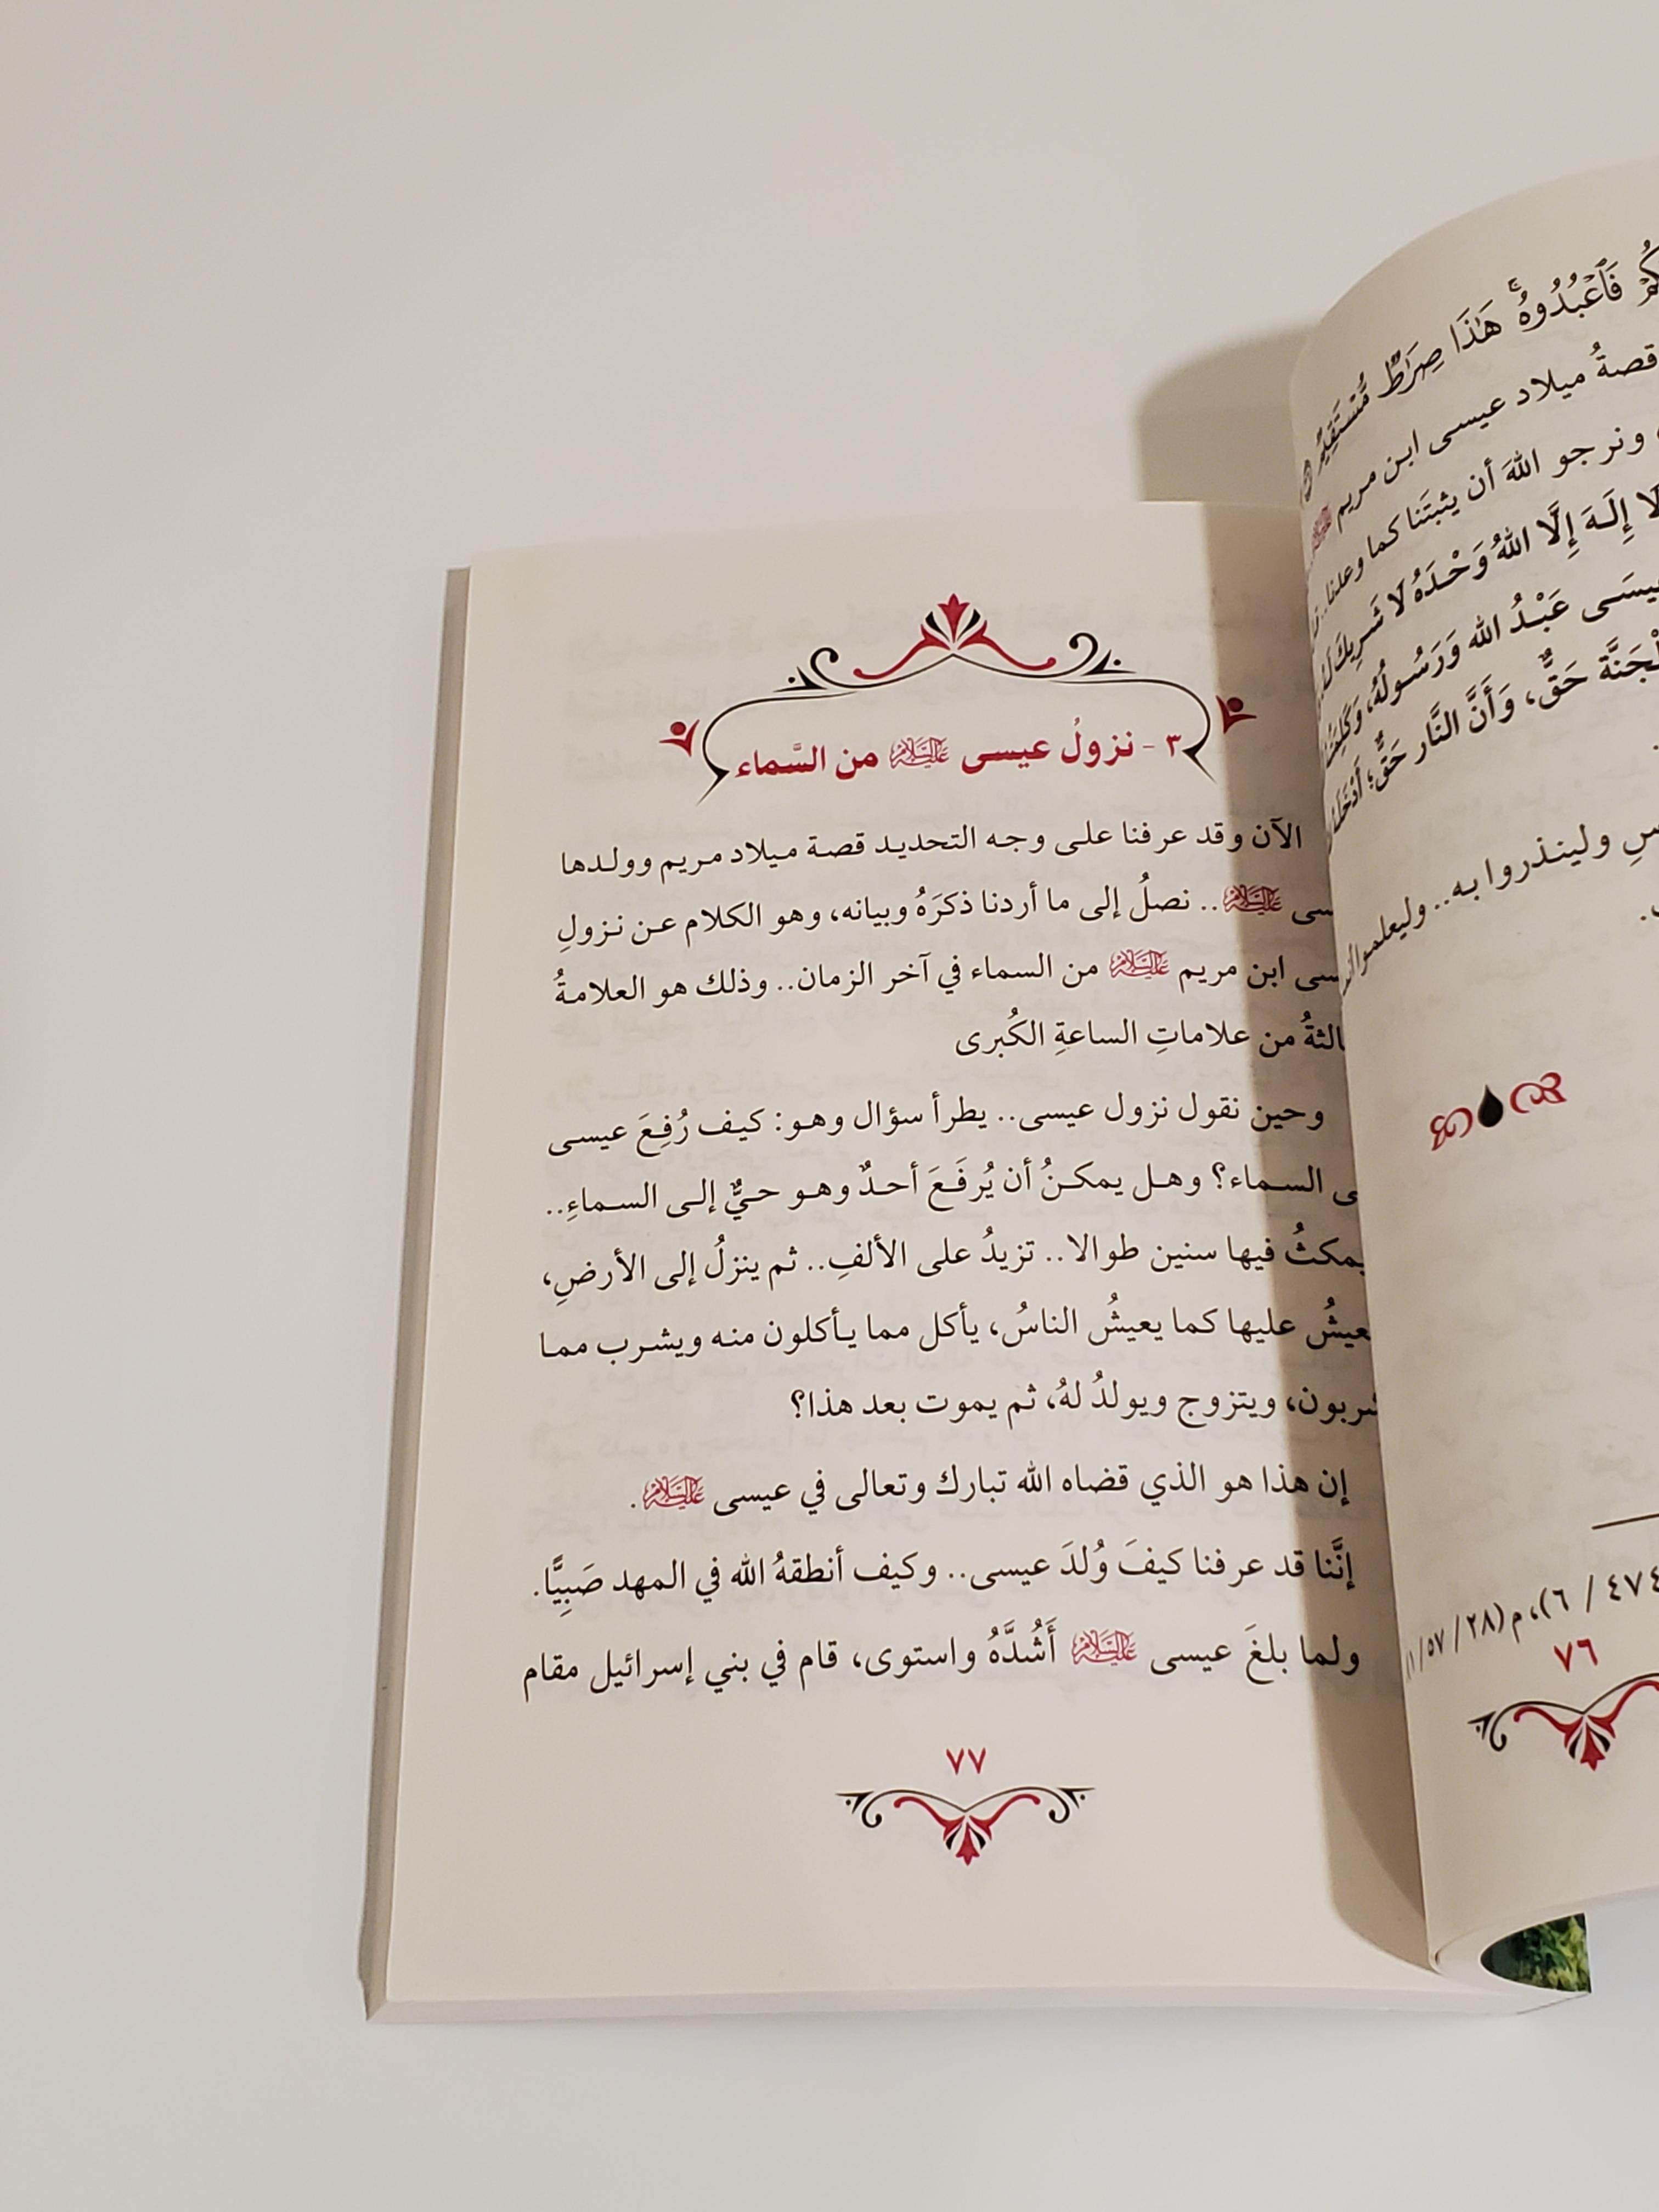 فَٱعْبُدُوهُ ۚ هَٰذَا صِرَٰطٌ مُّسْتَقِيمٌ
قصةُ ميلاد عيسى ابن مريم
ونرجو اللهَ أن يثبتَنا كما وعدنا..
إِلَهَ إِلَّا اللهُ وَحْدَهُ لَا شَرِيكَ
عَبْدُ الله وَرَسُولُهُ،
حَقٌّ، وَأَنَّ النَّار حَقٌّ؛
ولينذروا به.. وليعلموا
٦)، م (٢٨ / ٥٧ /
٧٦
٣ - نزولُ عيسى عليه السلام من السَّماء
الآن وقد عرفنا على وجه التحديد قصة ميلاد مريم وولدها
عليه السلام.. نصلُ إلى ما أردنا ذكرَهُ وبيانه، وهو الكلام عن نزولِ
ابن مريم عليه السلام من السماء في آخر الزمان.. وذلك هو العلامةُ
من علاماتِ الساعةِ الكُبرى
وحين نقول نزول عيسى.. يطرأ سؤال وهو: كيف رُفِعَ عيسى
السماء؟ وهل يمكنُ أن يُرفَعَ أحدٌ وهو حيٌّ إلى السماءِ..
يمكثُ فيها سنين طوالا.. تزيدُ على الألفِ.. ثم ينزلُ إلى الأرضِ،
عليها كما يعيشُ الناسُ، يأكل مما يأكلون منه ويشرب مما
ويتزوج ويولدُ لهُ، ثم يموت بعد هذا؟
إن هذا هو الذي قضاه الله تبارك وتعالى في عيسى عليه السلام.
إنَّنا قد عرفنا كيفَ وُلدَ عيسى.. وكيف أنطقهُ الله في المهد صَبِيًّا.
ولما بلغَ عيسى عليه السلام أَشُدَّهُ واستوى، قام في بني إسرائيل مقام
٧٧